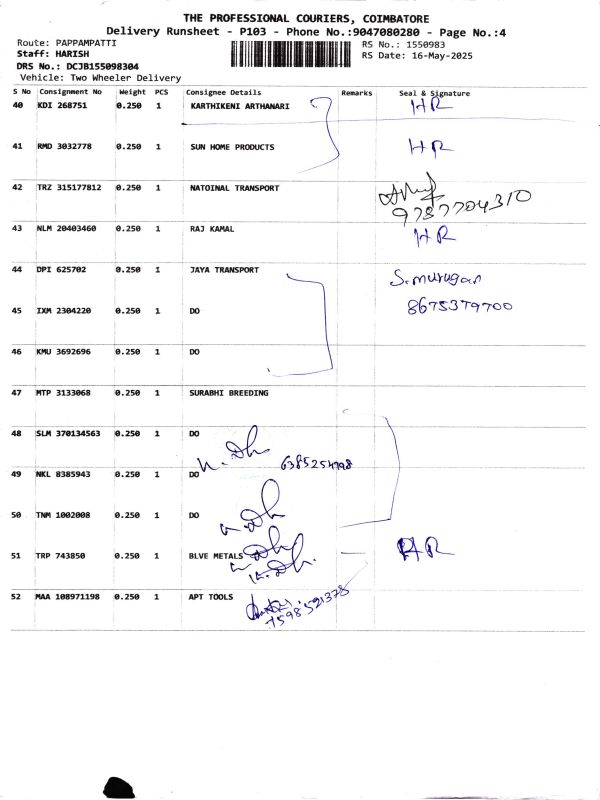 THE PROFESSIONAL COURIERS, COIMBATORE
Delivery Runsheet - P103 - Phone No.:9047080280 - Page No.:4
Route: PAPPAMPATTI
RS No.: 1550983
Staff: HARISH
RS Date: 16-May-2025
DRS No.: DCJB155098304
Vehicle: Two Wheeler Delivery
S No Consignment No Weight PCS Consignee Details Remarks Seal & Signature
40 KDI 268751 0.250 1 KARTHIKENI ARTHANARI HR
41 RMD 3032778 0.250 1 SUN HOME PRODUCTS HR
42 TRZ 315177812 0.250 1 NATOINAL TRANSPORT
9787704310
43 NLM 20403460 0.250 1 RAJ KAMAL HR
44 DPI 625702 0.250 1 JAYA TRANSPORT S.murugan
45 IXM 2304220 0.250 1 DO 8675379700
46 KMU 3692696 0.250 1 DO
47 MTP 3133068 0.250 1 SURABHI BREEDING
48 SLM 370134563 0.250 1 DO
49 NKL 8385943 0.250 1 DO
50 TNM 1002008 0.250 1 DO
51 TRP 743850 0.250 1 BLVE METALS HR
52 MAA 108971198 0.250 1 APT TOOLS
7598521378